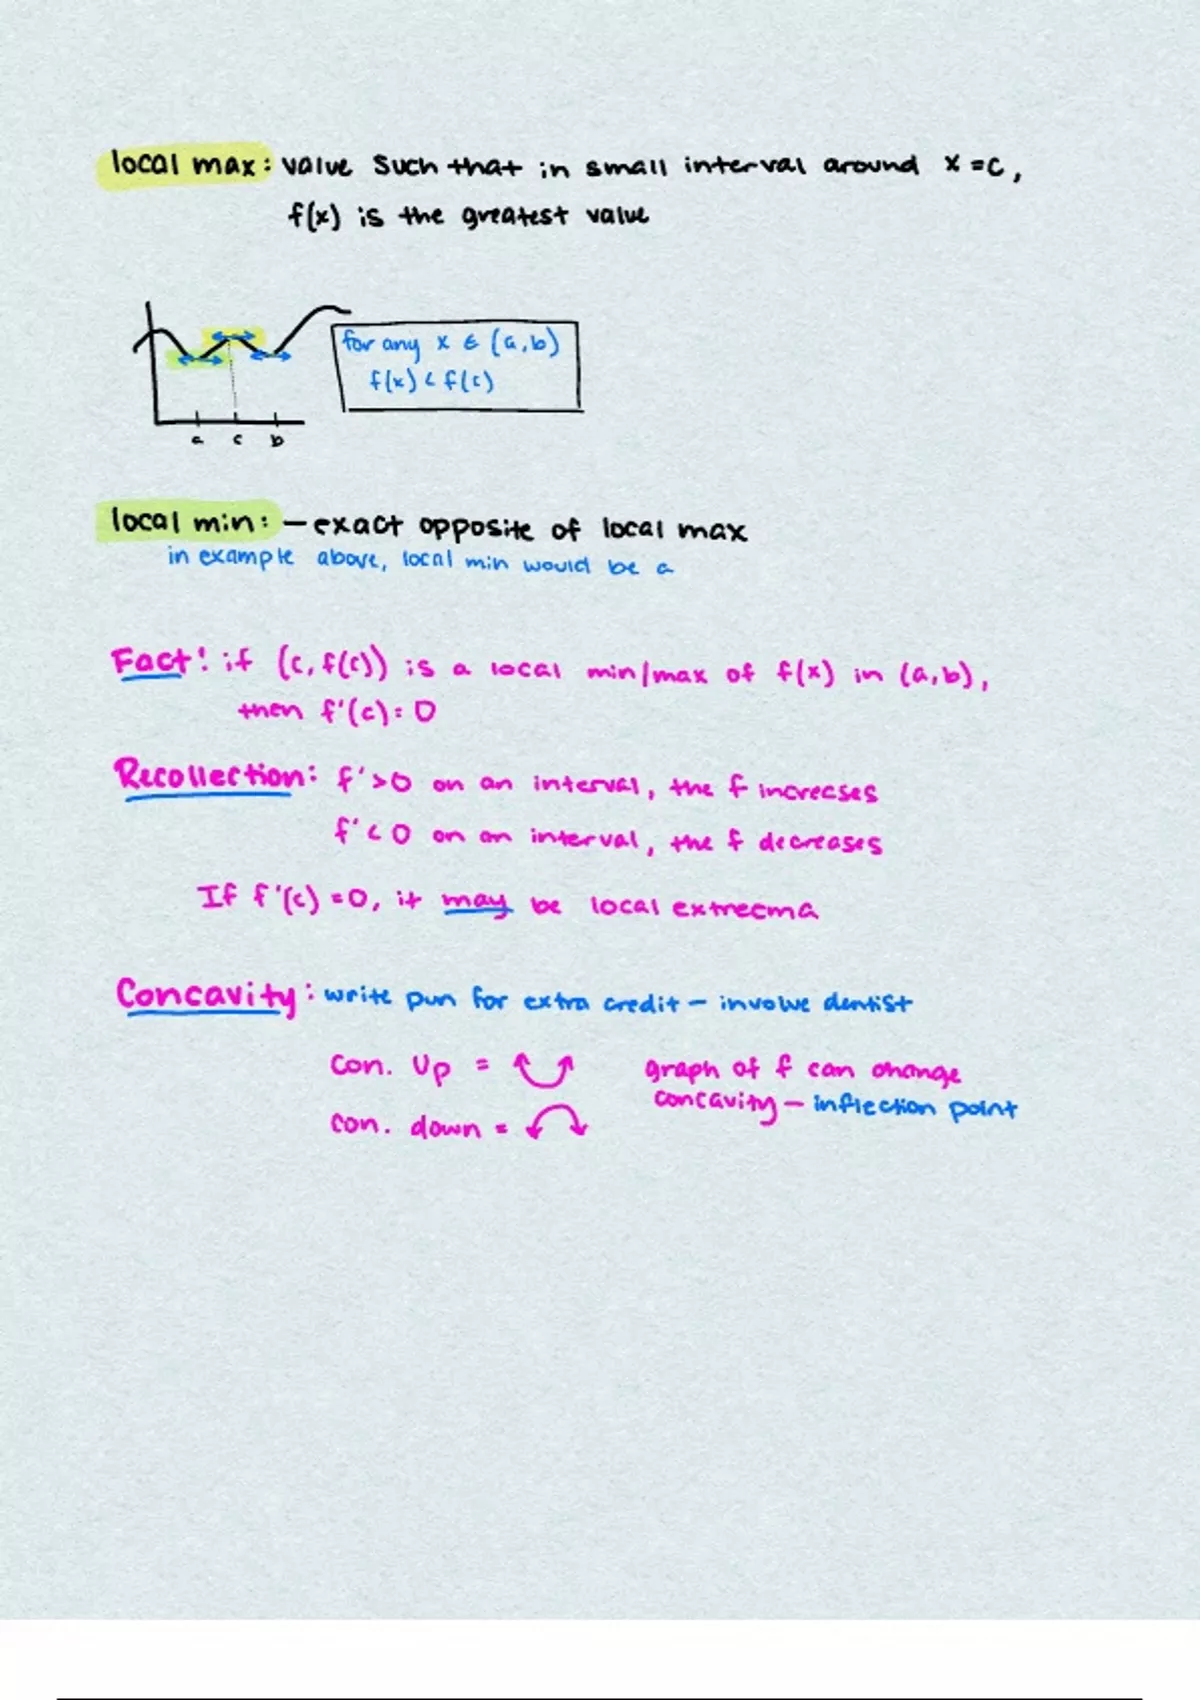 local max: value such that in small interval around x=c,
f(x) is the greatest value
for any x ∈ (a,b)
f(x) < f(c)
a c b
local min: - exact opposite of local max
in example above, local min would be a
Fact! if (c, f(c)) is a local min/max of f(x) in (a,b),
then f'(c)=0
Recollection: f'>0 on an interval, the f increases
f'<0 on an interval, the f decreases
If f'(c)=0, it may be local extreema
Concavity: write pun for extra credit - involve dentist
con. up =
graph of f can change
concavity - inflection point
con. down =